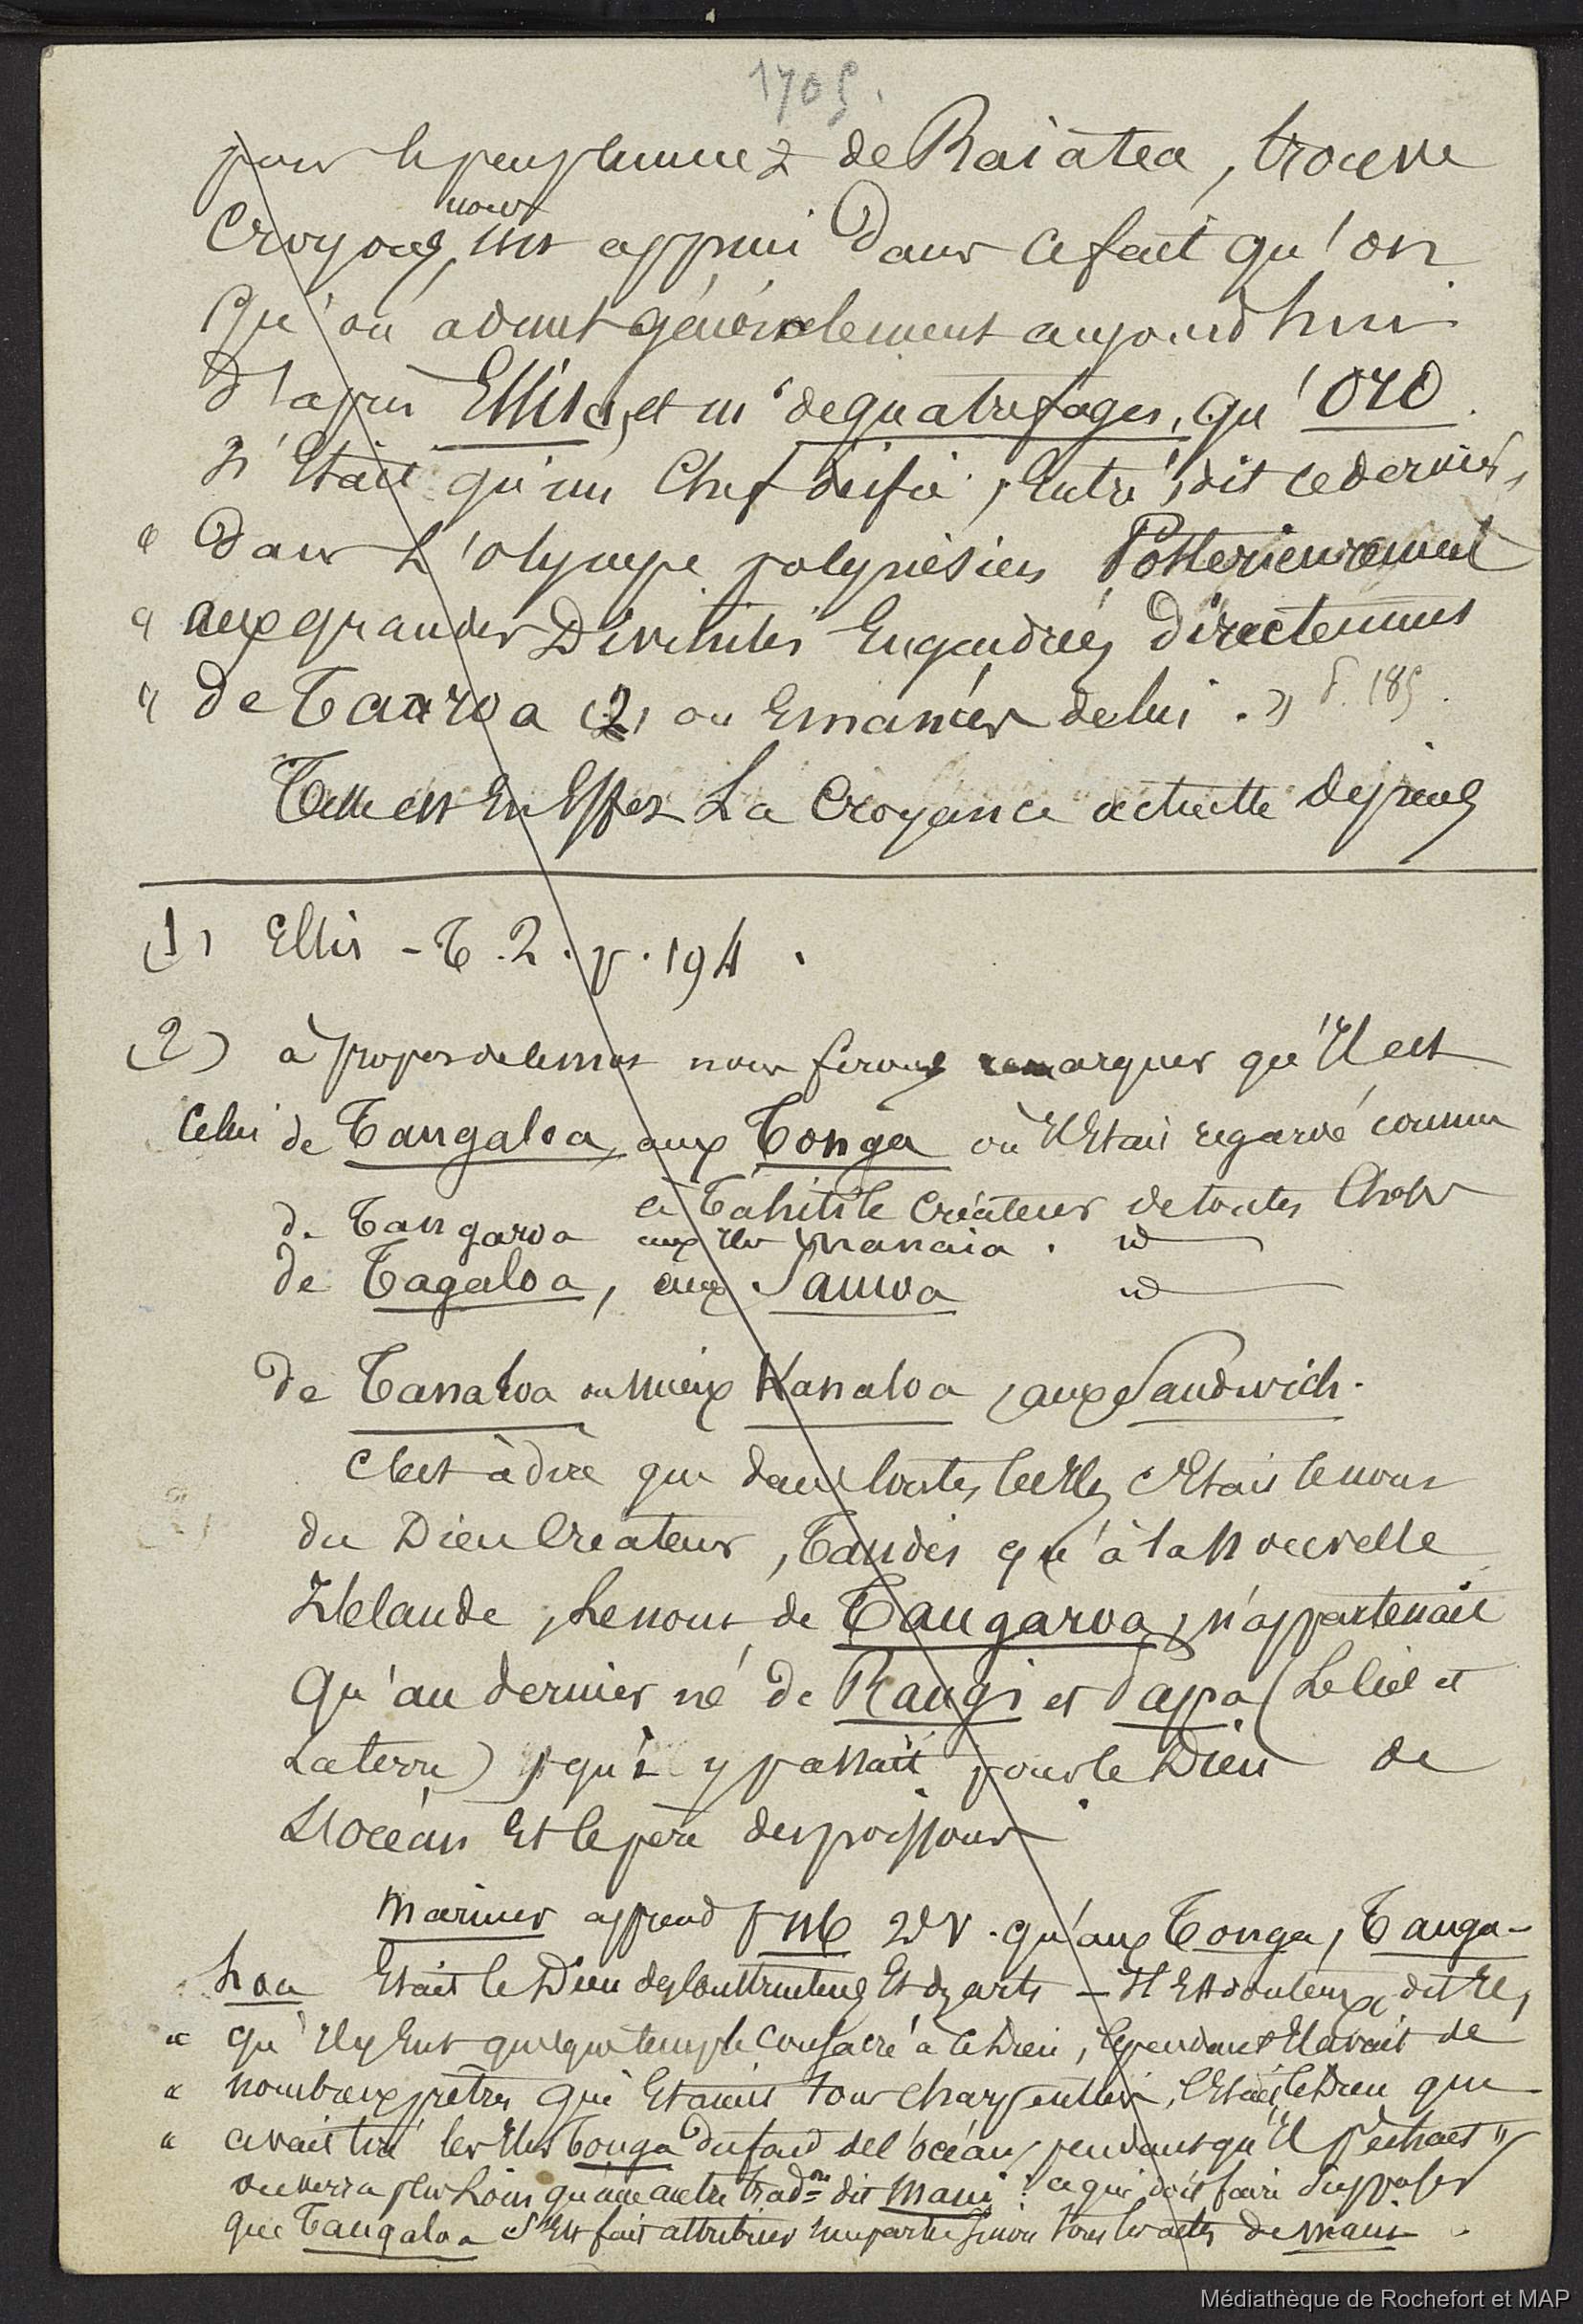 1705.
pour le peuplement de Raiatea, trouve
nous
croyons, un appui dans ce fait qu'on
qu'on admet généralement aujourd'hui
d'après Ellis (1) et mr de quatrefages, qu'ORO
n'était qu'un chef déifié, "entré, dit ce dernier,
" dans l'olympe polynésien postérieurement
" aux grandes Divinités engendrées directement
" de Taaroa (2) ou Emanées de lui. " p. 185.
Telle est en effet la croyance actuelle depuis
(1) Ellis - T. 2. p. 194.
(2) à propos de le mot nous ferons remarquer qu'il est
celui de Tangaloa, aux Tonga où il était regardé comme
à Tahiti le créateur de toutes choses
de Tangaroa aux iles manaia. id
de Tagaloa, aux Samoa id
de Tanaloa ou mieux Kanaloa, aux Sandwich.
c'est à dire que dans toutes les Iles c'était le nom
du Dieu créateur, Tandis qu'à la nouvelle
Zélande, le nom de Tangaroa, n'appartenait
qu'au dernier né de Rangi et Papa (le ciel et
la terre), qui y passait pour le Dieu de
l'océan et le père des poissons.
Mariner apprend qu'aux Tonga, Tanga-
loa était le Dieu des constructeurs et des arts - "il est douteux, dit il,
" qu'il y eut quelque temple consacré à ce Dieu, cependant il avait de
" nombreux prêtres qui étaient tous charpentiers, c'était le Dieu qui
" avait tiré les Iles Tonga du fond de l'océan pendant qu'il pêchait "
on verra plus loin qu'une autre tradon dit Maui : ce qui doit faire supposer
que Tangaloa s'est fait attribuer une partie sinon tous les actes de maui.
Médiathèque de Rochefort et MAP